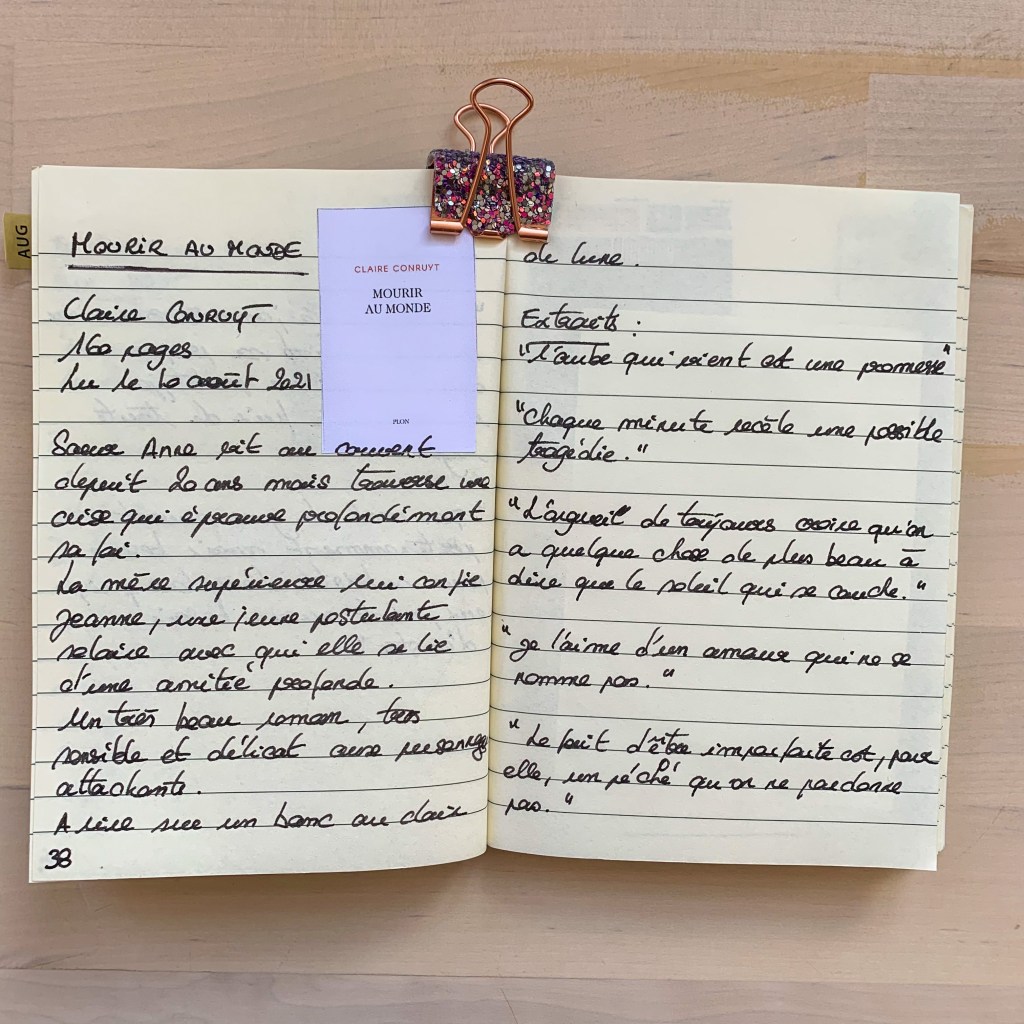 AUG
MOURIR AU MONDE
CLAIRE CONRUYT
MOURIR
AU MONDE
PLON
Claire CONRUYT
160 pages
Lu le 10 août 2021
Soeur Anne vit au couvent
depuit 20 ans mais traverse une
crise qui éprouve profondément
sa foi.
La mère supérieure lui confie
Jeanne, une jeune postulante
solaire avec qui elle se lie
d'une amitié profonde.
Un très beau roman, très
sensible et délicat aux personnages
attachants.
A lire sur un banc au clair
38
de lune.
Extraits :
"L'aube qui vient est une promesse"
"Chaque minute recèle une possible
tragédie."
"L'orgueil de toujours croire qu'on
a quelque chose de plus beau à
dire que le soleil qui se couche."
"Je l'aime d'un amour qui ne se
nomme pas."
"Le fait d'être imparfaite est, pour
elle, un péché qu'on ne pardonne
pas."